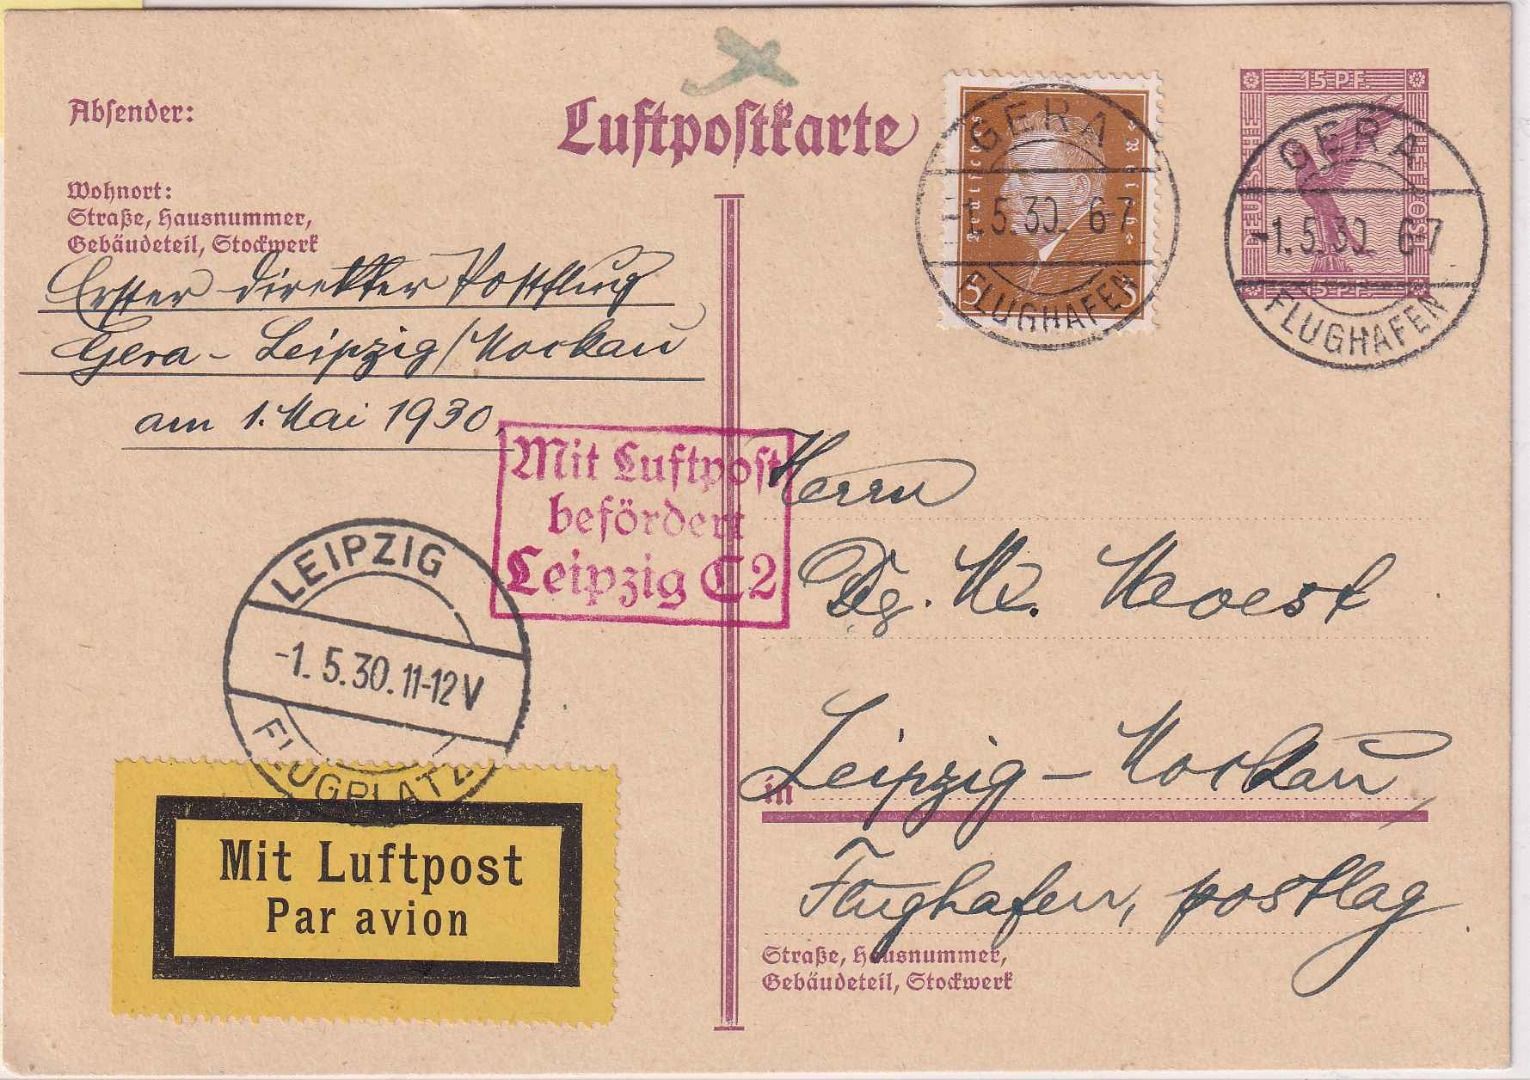 Luftpostkarte
Absender:
Wohnort:
Straße, Hausnummer,
Gebäudeteil, Stockwerk
Erster direkter Postflug
Gera - Leipzig/Mockau
am 1. Mai 1930.
Deutsches Reich
5 5
GERA
-1.5.30. 6-7
FLUGHAFEN
15 PF.
DEUTSCHE
REICHSPOST
15 PF.
GERA
-1.5.30. 6-7
FLUGHAFEN
Mit Luftpost
befördert
Leipzig C2
LEIPZIG
-1.5.30.11-12V
FLUGPLATZ
Mit Luftpost
Par avion
Herrn
in Leipzig-Mockau,
Flughafen, postlag
Straße, Hausnummer,
Gebäudeteil, Stockwerk